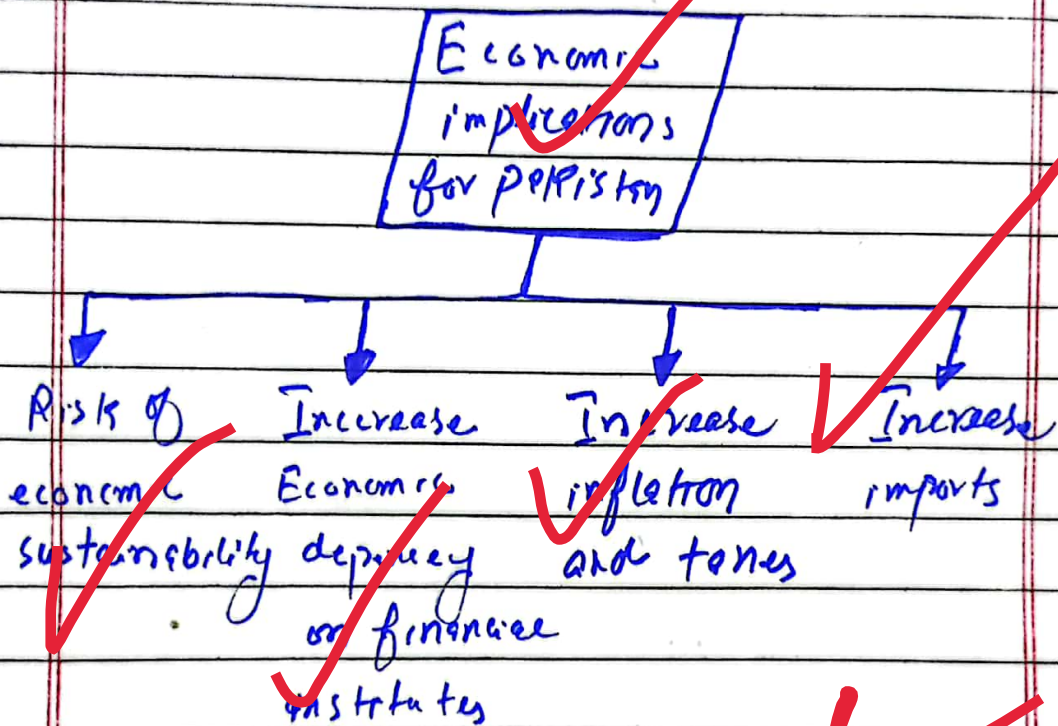 Economic
implications
for Pakistan
Risk of
economic
sustainability
Increase
Economic
depency
on financial
institutes
Increase
inflation
and taxes
Increase
imports